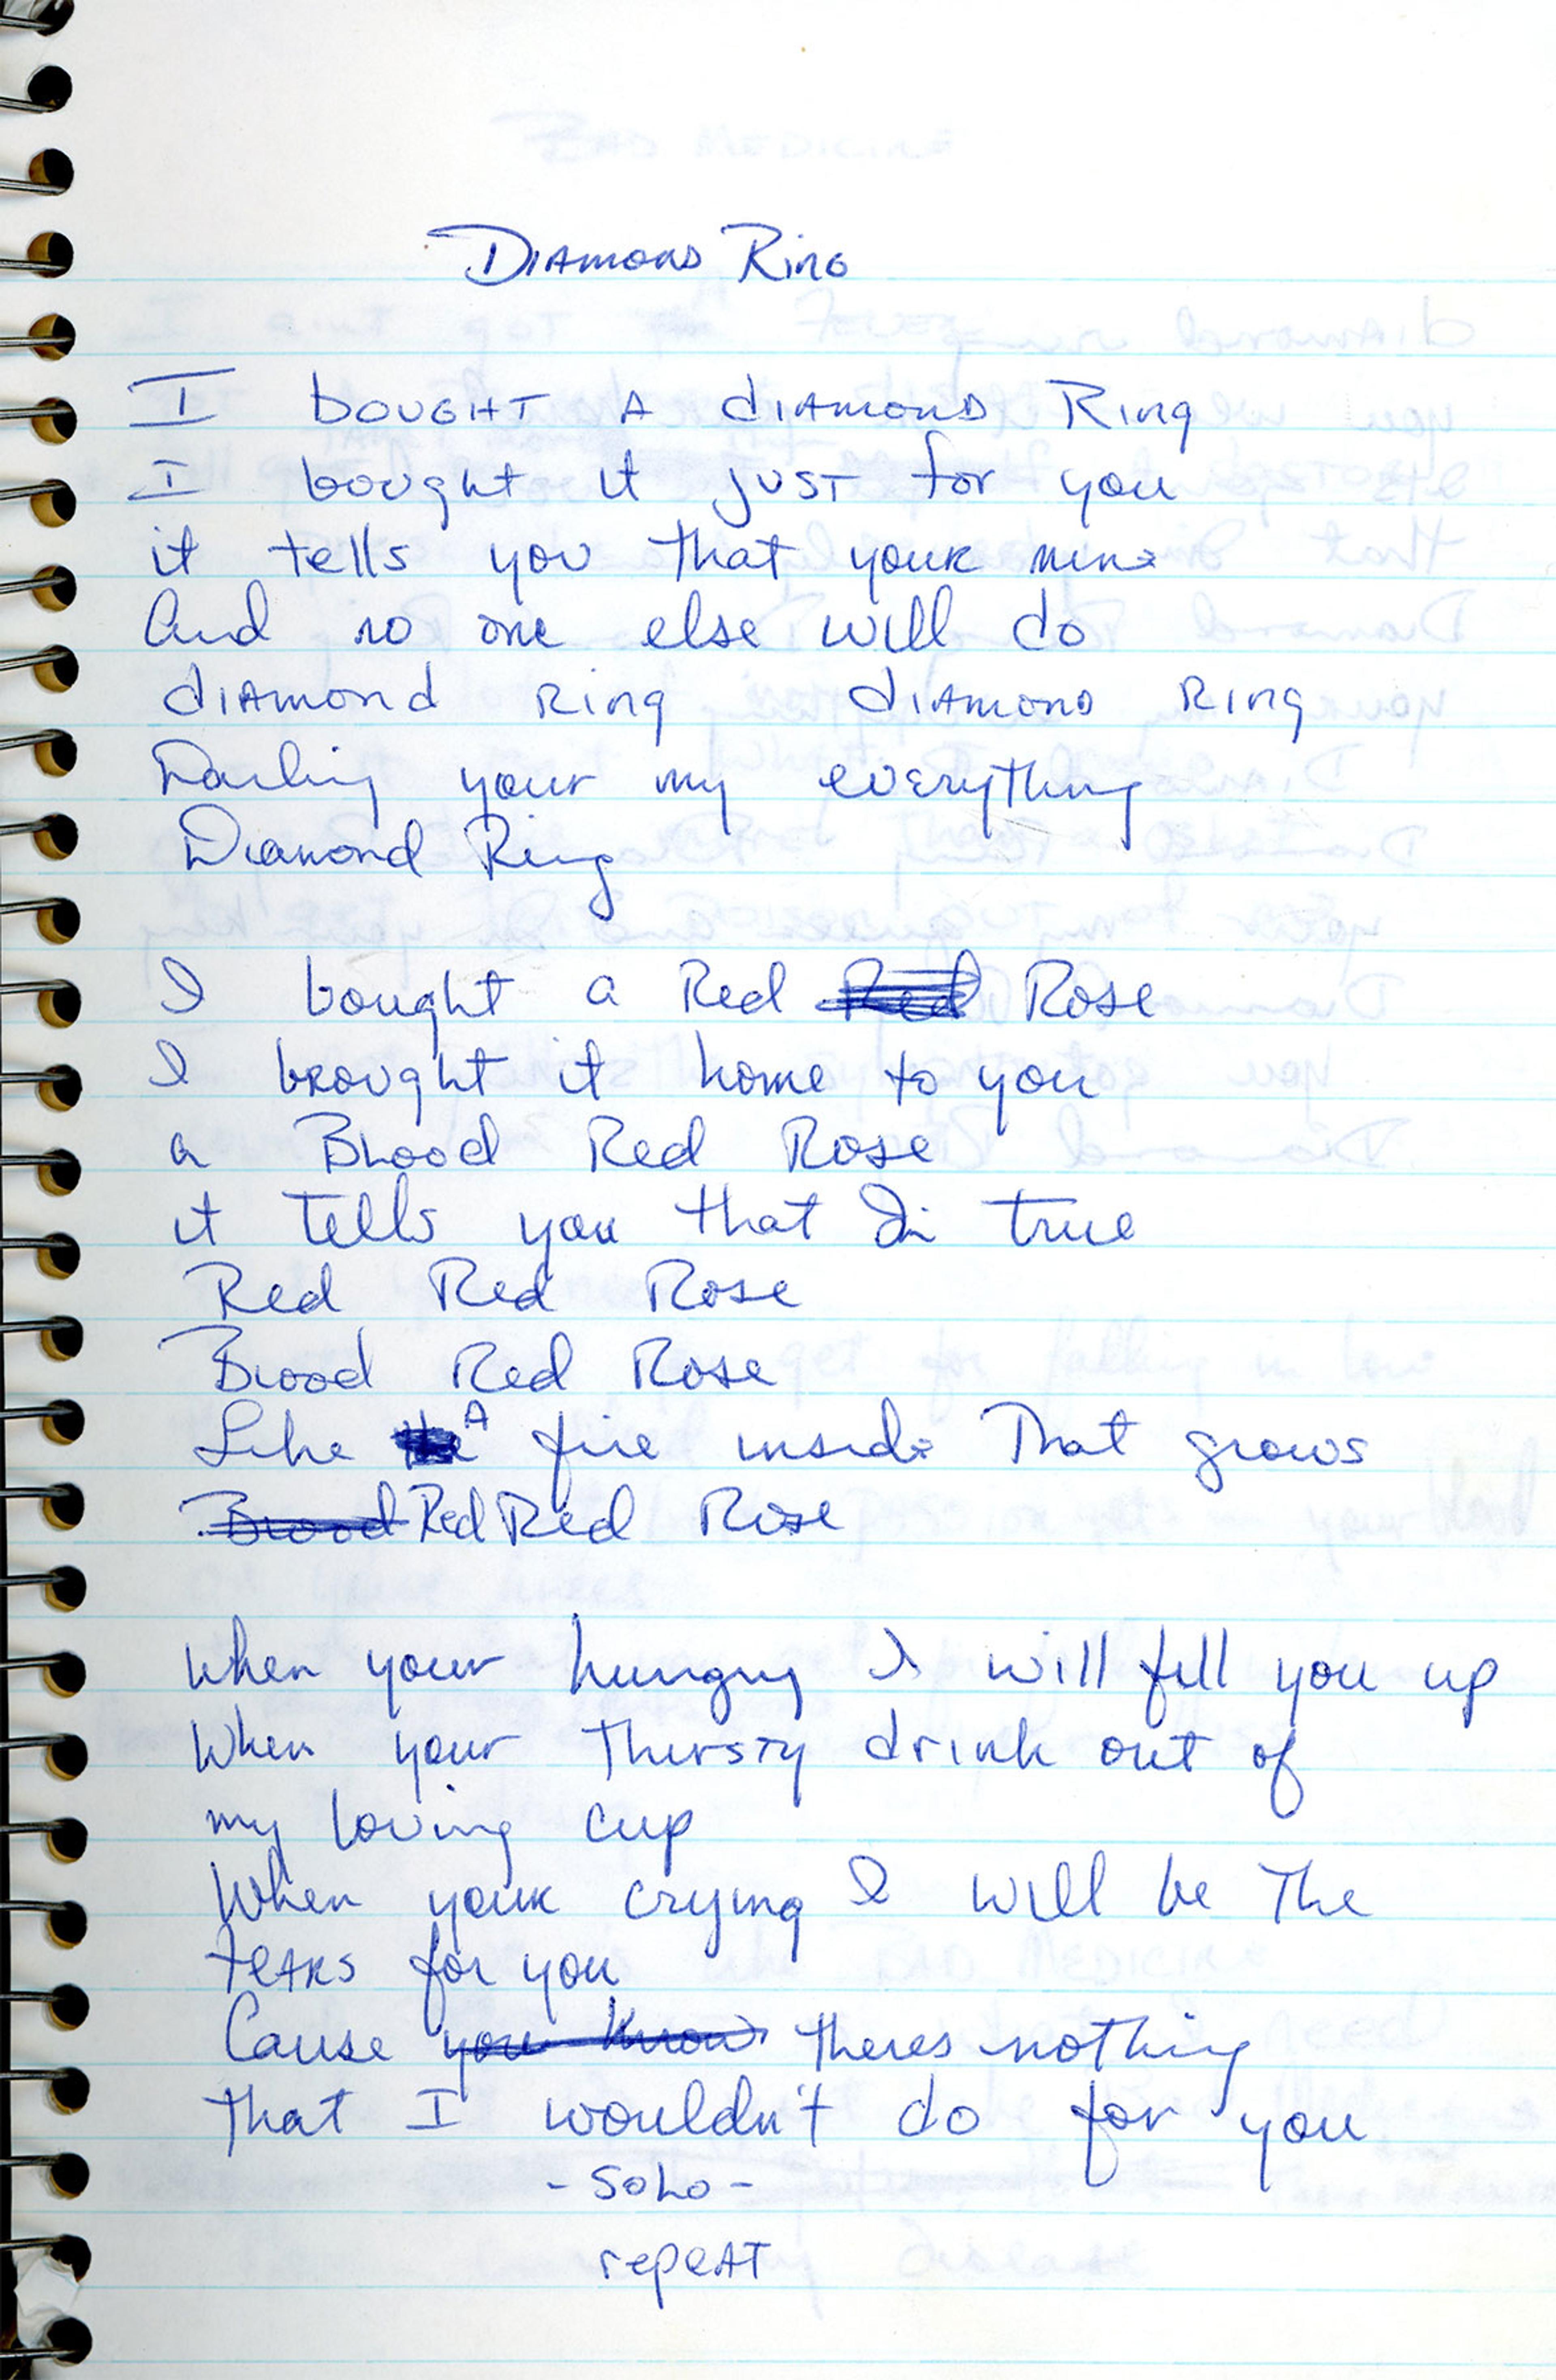 Diamond Ring
I bought A diamond Ring
I bought it just for you
it tells you that your mine
And no one else will do
diamond Ring diamond Ring
Darling your my everything
Diamond Ring
I bought a Red Red Rose
I brought it home to you
a Blood Red Rose
it tells you that Im true
Red Red Rose
Blood Red Rose
Like the A fire inside That grows
Blood Red Red Rose
when your hungry I will fill you up
When your Thirsty drink out of
my loving cup
When your crying I will be The
tears for you
Cause you know theres nothing
that I wouldn't do for you
- Solo -
repeat